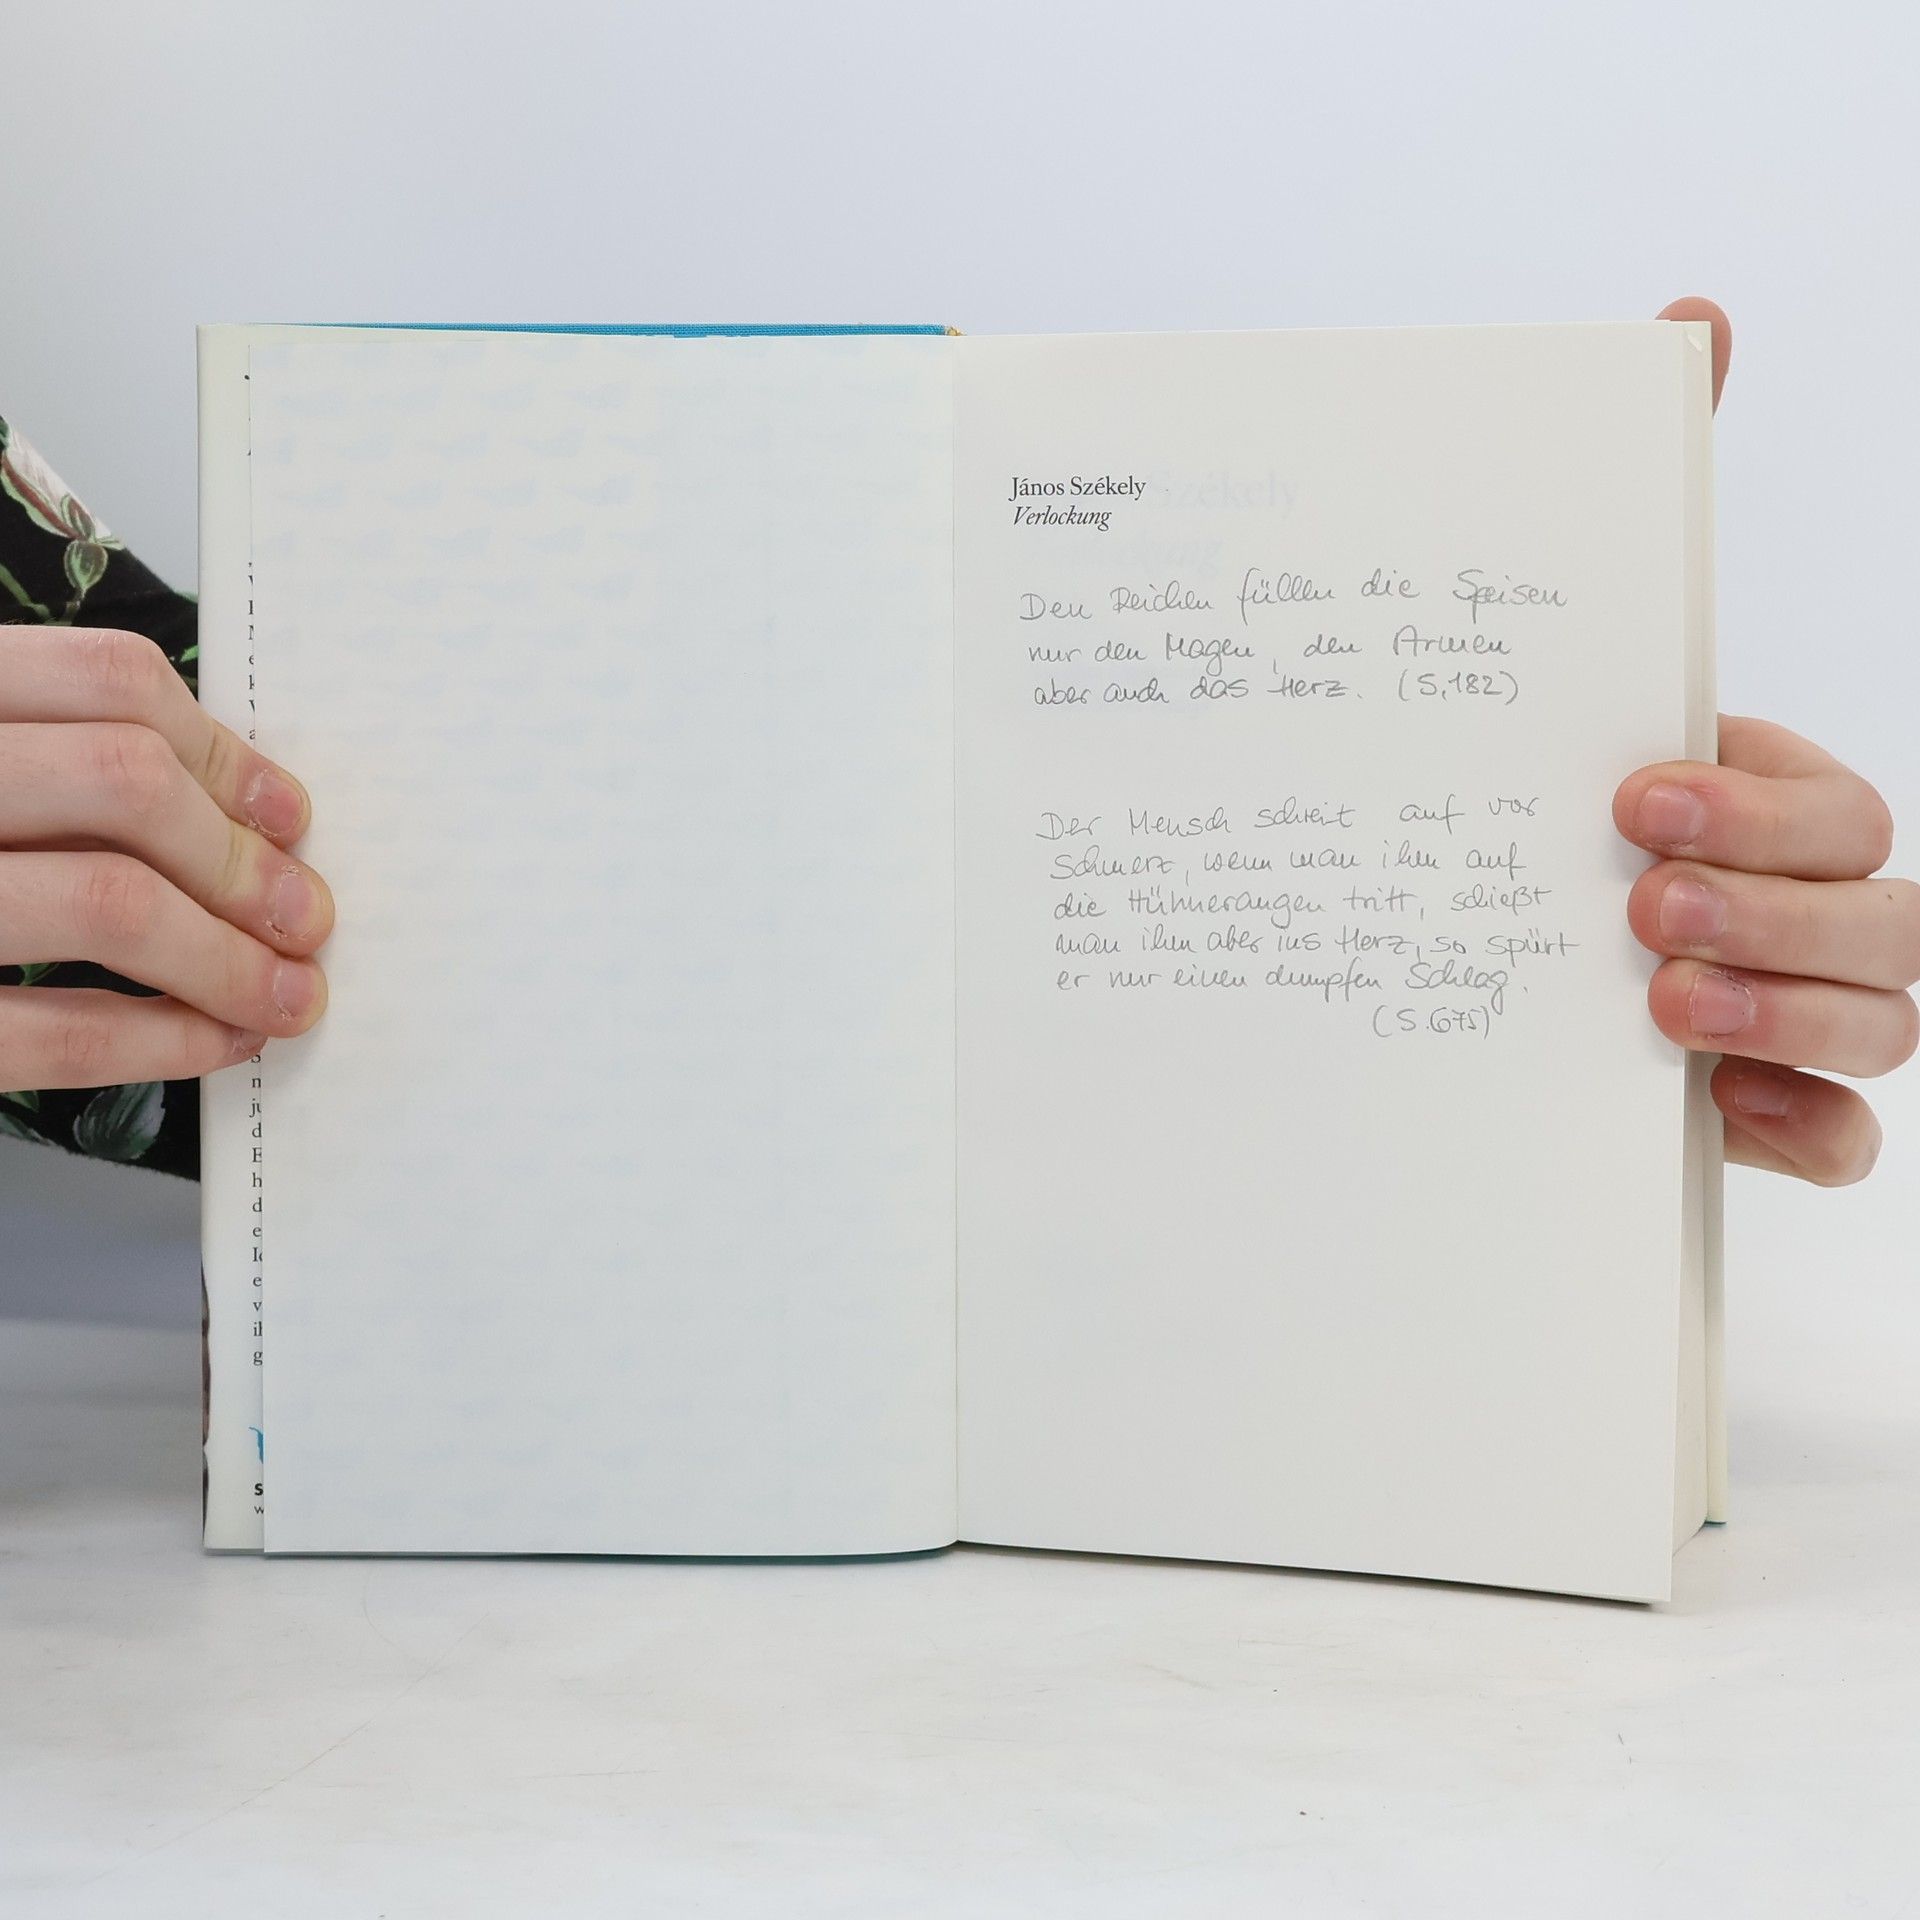 János Székely
Verlockung
Den Reichen füllen die Speisen
nur den Magen, den Armen
aber auch das Herz. (S. 182)
Der Mensch schreit auf vor
Schmerz, wenn man ihm auf
die Hühneraugen tritt, schießt
man ihm aber ins Herz, so spürt
er nur einen dumpfen Schlag.
(S. 675)